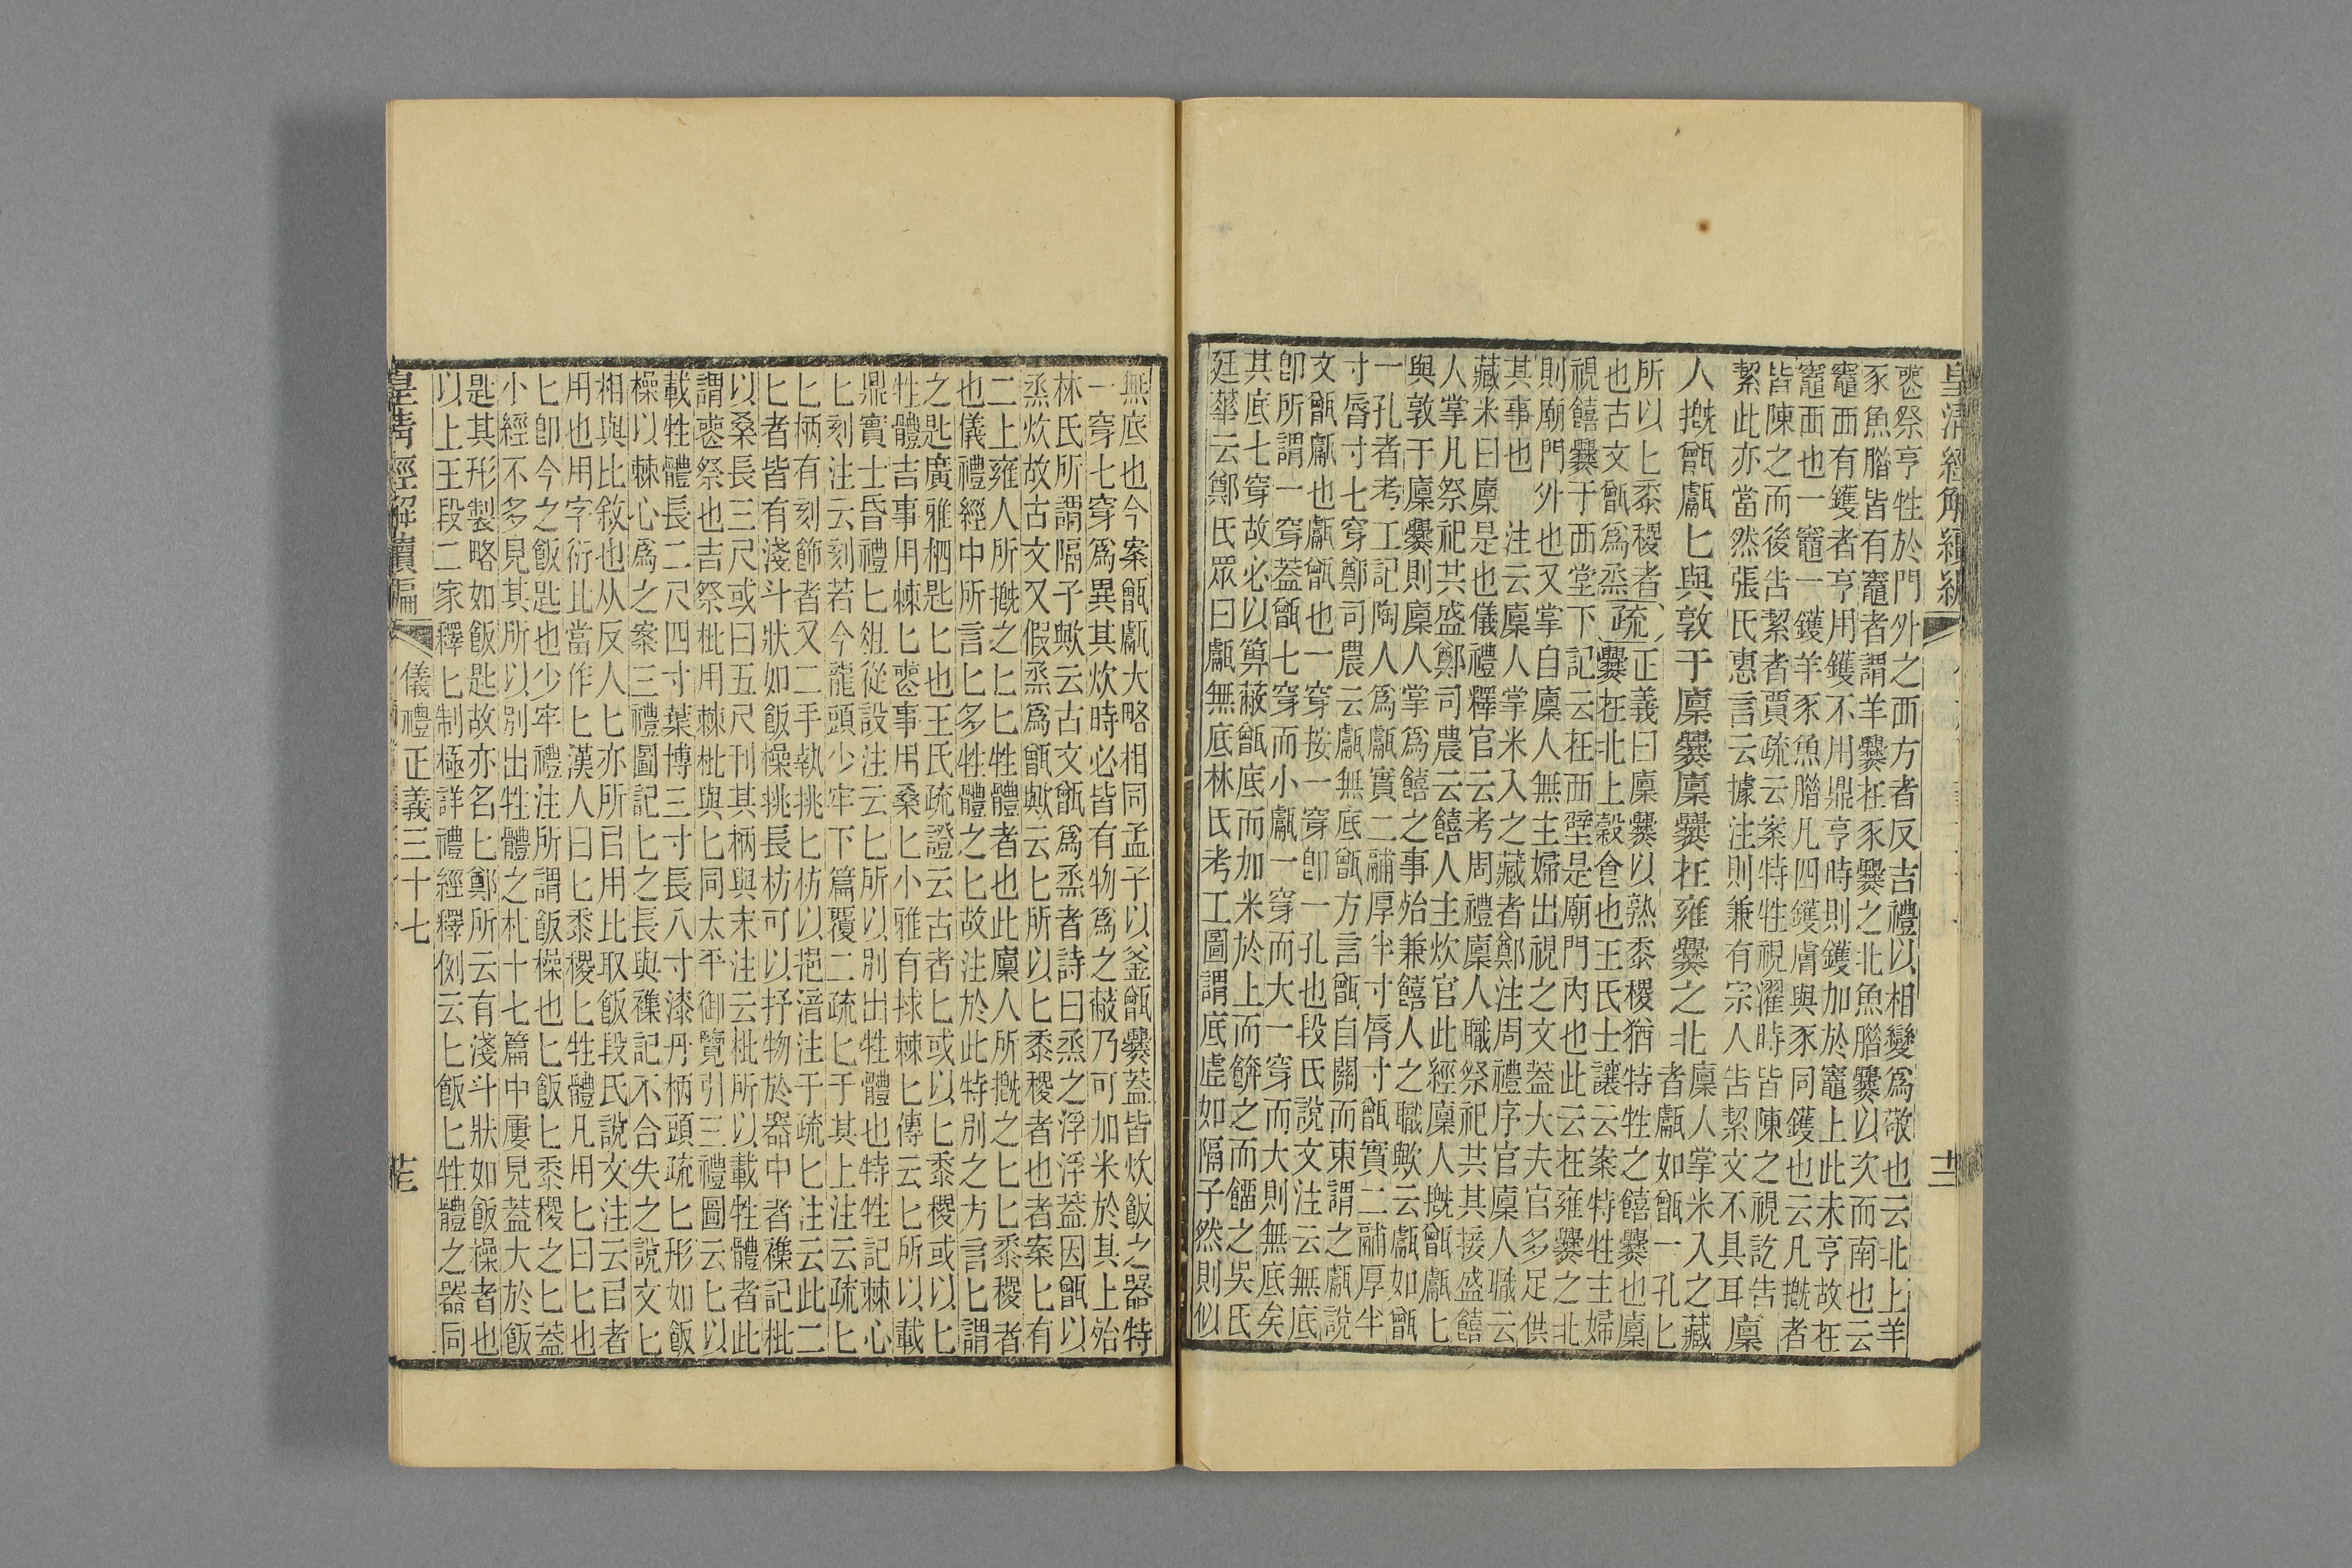 皇清經解續編
十二
䘮祭亨牲於門外之西方者反吉禮以相變爲敬也云北上羊
豕魚腊皆有竈者謂羊爨在豕爨之北魚腊爨以次而南也云
竈西有鑊者亨用鑊不用鼎亨時則鑊加於竈上此未亨故在
竈西也一竈一鑊羊豕魚腊凡四鑊膚與豕同鑊也云凡摡者
皆陳之而後告絜者賈疏云案特牲視濯時皆陳之視訖告
絜此亦當然張氏惠言云據注則兼有宗人告絜文不具耳
廩
人摡甑甗匕與敦于廩爨廩爨在雍爨之北
廩人掌米入之藏
者甗如甑一孔匕
所以匕黍稷者
也古文甑爲烝
疏
正義曰廩爨以熟黍稷猶特牲之饎爨也廩
爨在北上穀食也王氏士讓云案特牲主婦
視饎爨于西堂下記云在西壁是廟門內也此云在雍爨之北
則廟門外也又掌自廩人無主婦出視之文蓋大夫官多足供
其事也 注云廩人掌米入之藏者鄭注周禮序官廩人職云
藏米曰廩是也儀禮釋官云考周禮廩人職祭祀共其接盛饎
人掌凡祭祀共盛鄭司農云饎人主炊官此經廩人摡甑甗匕
與敦于廩爨則廩人掌爲饎之事殆兼饎人之職歟云甗如甑
一孔者考工記陶人爲甗實二鬴厚半寸脣寸甑實二鬴厚半
寸脣寸七穿鄭司農云甗無底甑方言甑自關而東謂之甗說
文甑甗也甗甑也一穿按一穿卽一孔也段氏說文注云無底
卽所謂一穿蓋甑七穿而小甗一穿而大一穿而大則無底矣
其底七穿故必以箅蔽甑底而加米於上而餴之而餾之吳氏
廷華云鄭氏眾曰甗無底林氏考工圖謂底虛如隔子然則似
無底也今案甑甗大略相同孟子以釜甑爨蓋皆炊飯之器特
一穿七穿爲異其炊時必皆有物爲之蔽乃可加米於其上殆
林氏所謂隔子歟云古文甑爲烝者詩曰烝之浮浮蓋因甑以
烝炊故古文又假烝爲甑歟云匕所以匕黍稷者也者案匕有
二上雍人所摡之匕匕牲體者也此廩人所摡之匕匕黍稷者
也儀禮經中所言匕多牲體之匕故注於此特別之方言匕謂
之匙廣雅柶匙匕也王氏疏證云古者匕或以匕黍稷或以匕
牲體吉事用棘匕䘮事用桑匕小雅有捄棘匕傳云匕所以載
鼎實士昏禮匕俎從設注云匕所以別出牲體也特牲記棘心
匕刻注云刻若今龍頭少牢下篇覆二疏匕于其上注云疏匕
匕柄有刻飾者又二手執挑匕枋以挹湆注于疏匕注云此二
匕者皆有淺斗狀如飯橾挑長枋可以抒物於器中者襍記枇
以桑長三尺或曰五尺刊其柄與末注云枇所以載牲體者此
謂䘮祭也吉祭枇用棘枇與匕同太平御覽引三禮圖云匕以
載牲體長二尺四寸葉博三寸長八寸漆丹柄頭疏匕形如飯
橾以棘心爲之案三禮圖記匕之長與襍記不合失之說文匕
相與比敘也从反人匕亦所㠯用比取飯段氏說文注云㠯者
用也用字衍比當作匕漢人曰匕黍稷匕牲體凡用匕曰匕也
匕卽今之飯匙也少牢禮注所謂飯橾也匕飯匕黍稷之匕蓋
小經不多見其所以別出牲體之朼十七篇中屢見蓋大於飯
匙其形製略如飯匙故亦名匕鄭所云有淺斗狀如飯橾者也
以上王段二家釋匕制極詳禮經釋例云匕飯匕牲體之器同
皇清經解續編
儀禮正義三十七